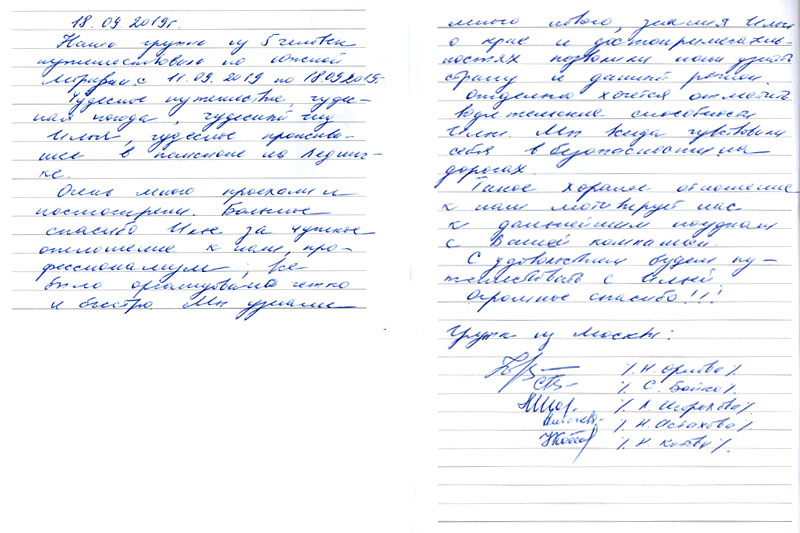 18.09.2019г.
Наша группа из 5 человек
путешествовала по Южной
Моравии с 11.09.2019 по 18.09.2019г.
Чудесное путешествие, чудес-
ная погода, чудесный гид
Илья, чудесное прожива-
ние в пенсионе на Ледниц-
ке.
Очень много проехали и
посмотрели. Большое
спасибо Илье за чуткое
отношение к нам, про-
фессионализм, все
было организовано четко
и быстро. Мы узнали
много нового, знания Ильи
о крае и достопримечатель-
ностях позволили нам узнать
страну и данный регион.
Отдельно хочется отметить
водительские способности
Ильи. Мы всегда чувствовали
себя в безопасности на
дорогах.
Такое хорошее отношение
к нам мотивирует нас
к дальнейшим поездкам
с Вашей компанией.
С удовольствием будем пу-
тешествовать с Ильей.
Огромное спасибо!!!
Группа из Москвы:
/. Н. Орлова /.
/. С. Бойко /.
/. Н. Астахова /.
/. Н.